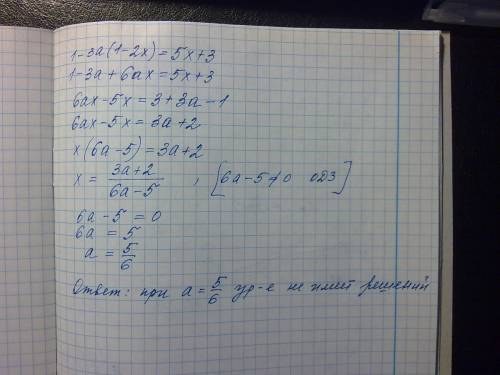 1-3a(1-2x)=5x+3
1-3a+6ax=5x+3
6ax-5x=3+3a-1
6ax-5x=3a+2
x(6a-5)=3a+2
x = \frac{3a+2}{6a-5} , [6a-5≠0 ОДЗ]
6a-5=0
6a=5
a=\frac{5}{6}
Ответ: при a=\frac{5}{6} ур-е не имеет решений